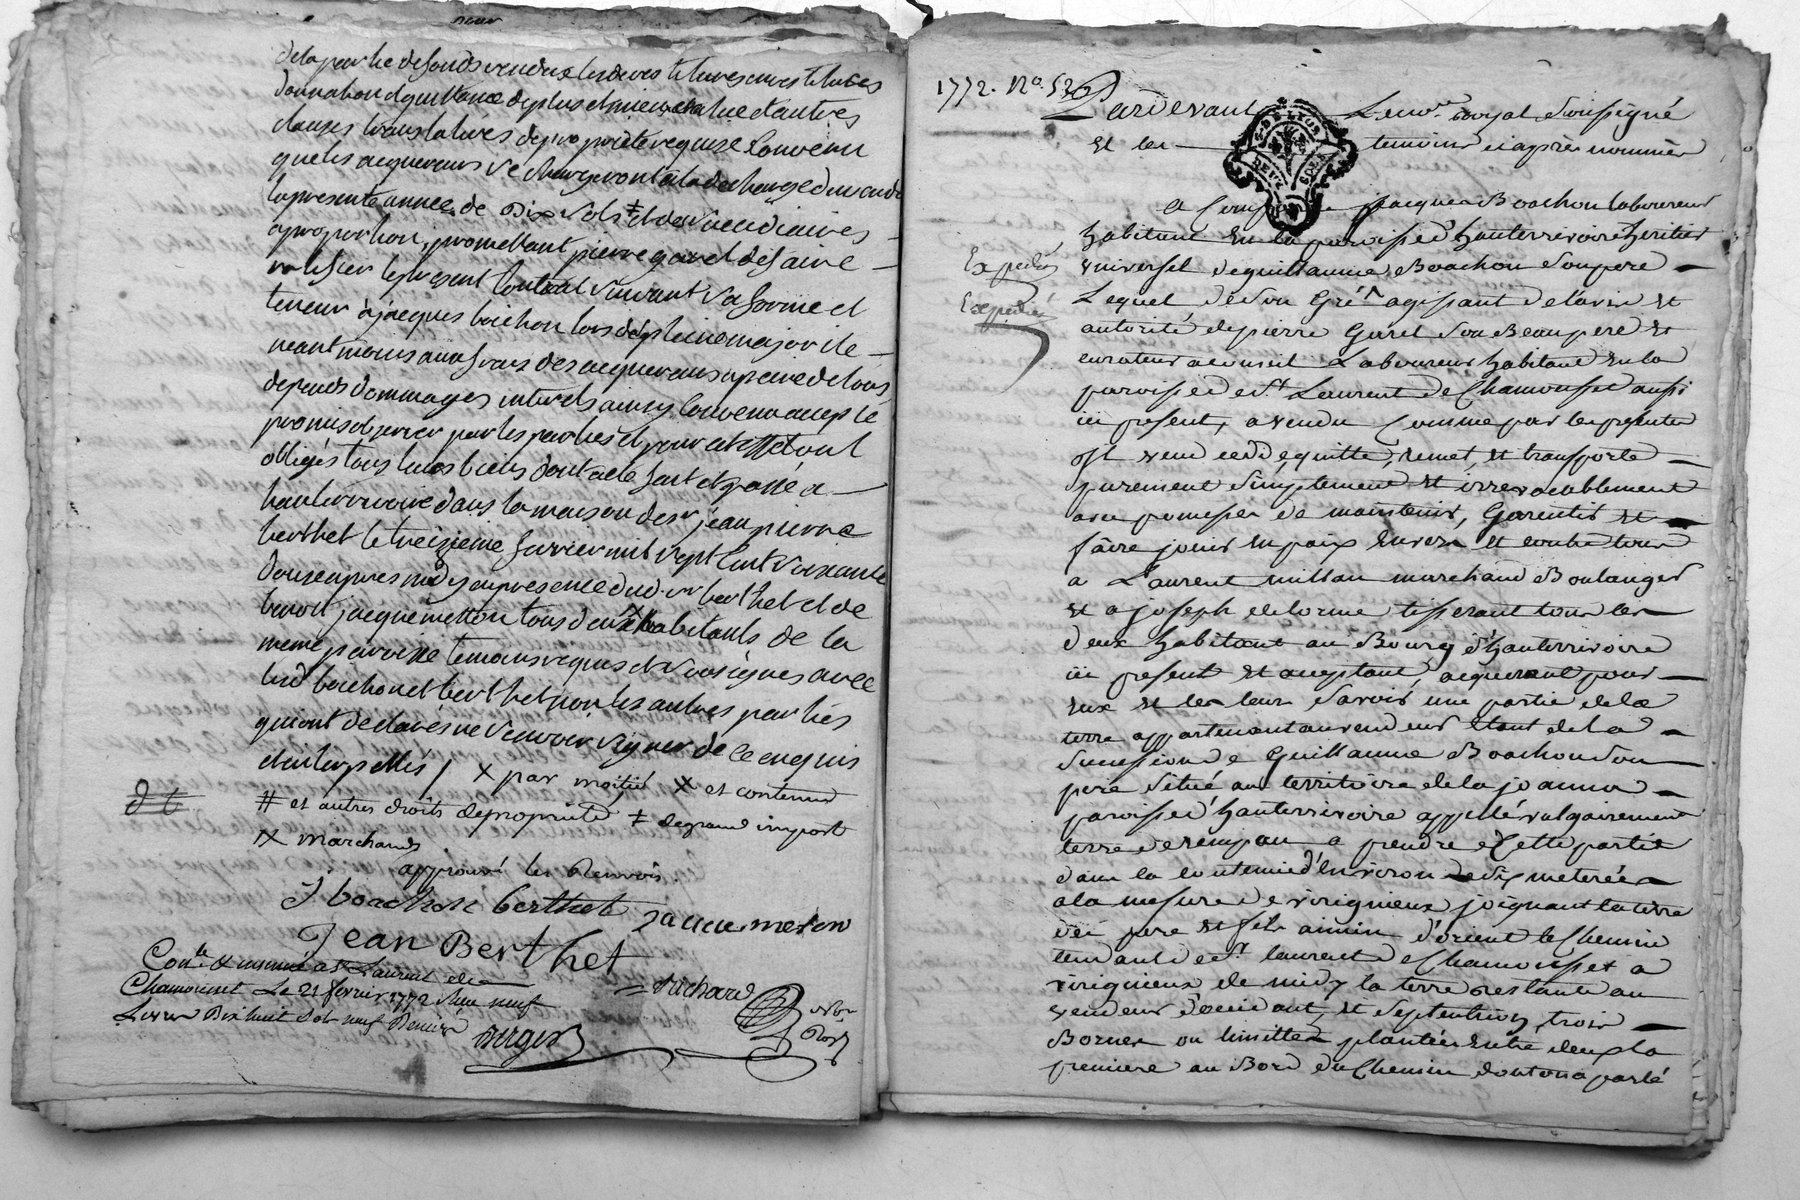 de la partie de fonds vendue les devestitures investitures
donnation et quittance de plus et mieux value et autres
clauses translatives de propriété requise convenu
que les acquereurs se chargeront à la décharge du vende
la presente année de dix sols ‡ et de vic
a proportion, promettant pierre garel de faire
ratifier le present contrat suivant sa forme et
teneur à jacques boichon lors de sa pleine majorité
neantmoins aux frais des acquereurs a peine de tous
depends dommages interets ainsy convenu accepté
promis observer par les parties et pour cet effet ont
obligés tous leurs biens dont acte fait et passé a
hauterrivoire dans la maison de sr jean pierre
berthet le treizieme fevrier mil sept cent soixante
douze apres midy en presence dud. sr berthet et de
benoit jacquemetton tous deux habitants de la
meme paroisse temoins requis et soussignes avec
led boichon et berthet non les autres parties
qui ont declarés ne scavoir signer de ce enquis
et interpellés / x par moitié x et contenus
# et autres droits de propriété ‡ de grand import
x marchands
approuvé les Renvois.
J boachon berthet jacquemeton
Jean Berthet
Conlé & insinué a St Laurent de
Chamousset Le 21 fevrier 1772 Reçu neuf
Livres Dix huit Sols neuf Deniers
Richard
Roy
1772. No. 536
Pardevant Le nore. royal soussigné
et les temoins ci après nommés
a Comparu jacques Boachon laboureur
habitant en la paroisse d'hauterrivoire heritier
Expédié
universel de guillaume Boachon son pere
Expédié
Lequel de son Gré agissant de l'avis et
autorité de pierre Garel son Beaupere et
curateur a conseil Laboureur habitant en la
paroisse de st Laurent de Chamousset aussi
ici present, a vendu comme par les presentes
il vend cedde, quitte, remet, et transporte
purement simplement et irrevocablement
avec promesse de maintenir, Garentir et
faire jouir en paix envers et contre tous
a Laurent millan marchand Boulanger
et a joseph delorme tisserant tous les
deux habitant au Bourg d'hauterrivoire
ici present et acceptant, acquerant pour
eux et les leurs savoir une partie de la
terre appartenant au vendeur etant de la
succession de Guillaume Boachon son
pere situé au territoire de la joanna
paroisse d'hauterrivoire appellé vulgairement
terre de a prendre Cette partie
dans la contenue d'Environ de dix meterées
a la mesure de virignieux joignant la terre
des pere et fils aimin d'orient le Chemin
tendant de st laurent de Chamousset a
virignieux de midy la terre restante au
vendeur d'occidant et septentrion, trois
Bornes ou limittes plantées entre deux la
premiere au Bord du Chemin dont on a parlé